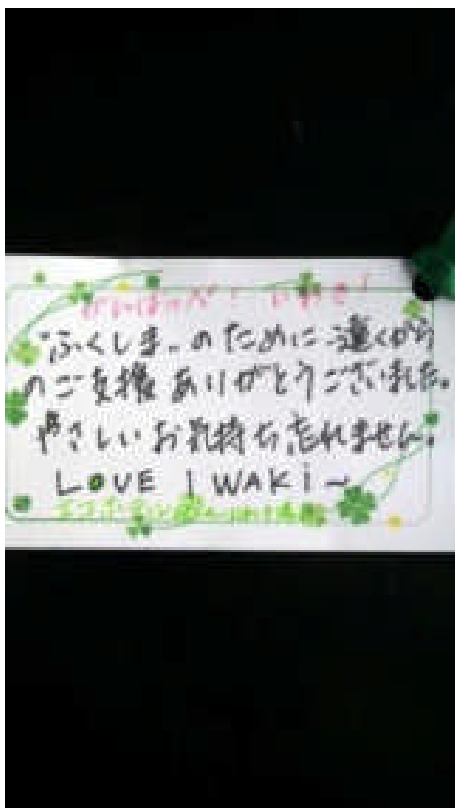 がんばっぺ! いわき!
"ふくしま"のために遠くから
のご支援ありがとうございました。
やさしいお気持ち忘れません。
LOVE IWAKi~